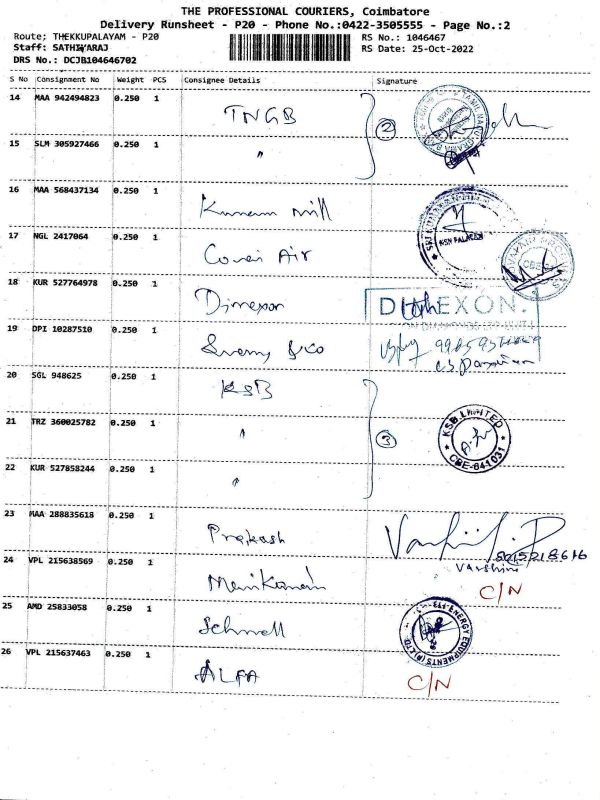 THE PROFESSIONAL COURIERS, Coimbatore
Delivery Runsheet - P20 - Phone No.:0422-3505555 - Page No.:2
Route; THEKKUPALAYAM - P20
RS No.: 1046467
Staff: SATHIYARAJ
RS Date: 25-Oct-2022
DRS No.: DCJB104646702
S No Consignment No Weight PCS Consignee Details Signature
14 MAA 942494823 0.250 1 TNGB
2
15 SLM 305927466 0.250 1 "
16 MAA 568437134 0.250 1 Kumaran mill
KSN PALAYAM
17 NGL 2417064 0.250 1 Covai Air
CBE
18 KUR 527764978 0.250 1 Dimexon
DIMEXON.
19 DPI 10287510 0.250 1 & co
20 SGL 948625 0.250 1 KSB
21 TRZ 360025782 0.250 1 "
3
KSB LIMITED
CBE-641031
22 KUR 527858244 0.250 1 "
23 MAA 288835618 0.250 1 Prakash
Varshini
24 VPL 215638569 0.250 1 Manikandan
C/N
25 AMD 25833058 0.250 1 Schnell
ENERGY EQUIPMENTS (P) LTD.
26 VPL 215637463 0.250 1 ALFA
C/N